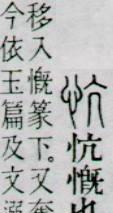 忼忼慨也
移入慨篆下。又奪
今依玉篇及文選